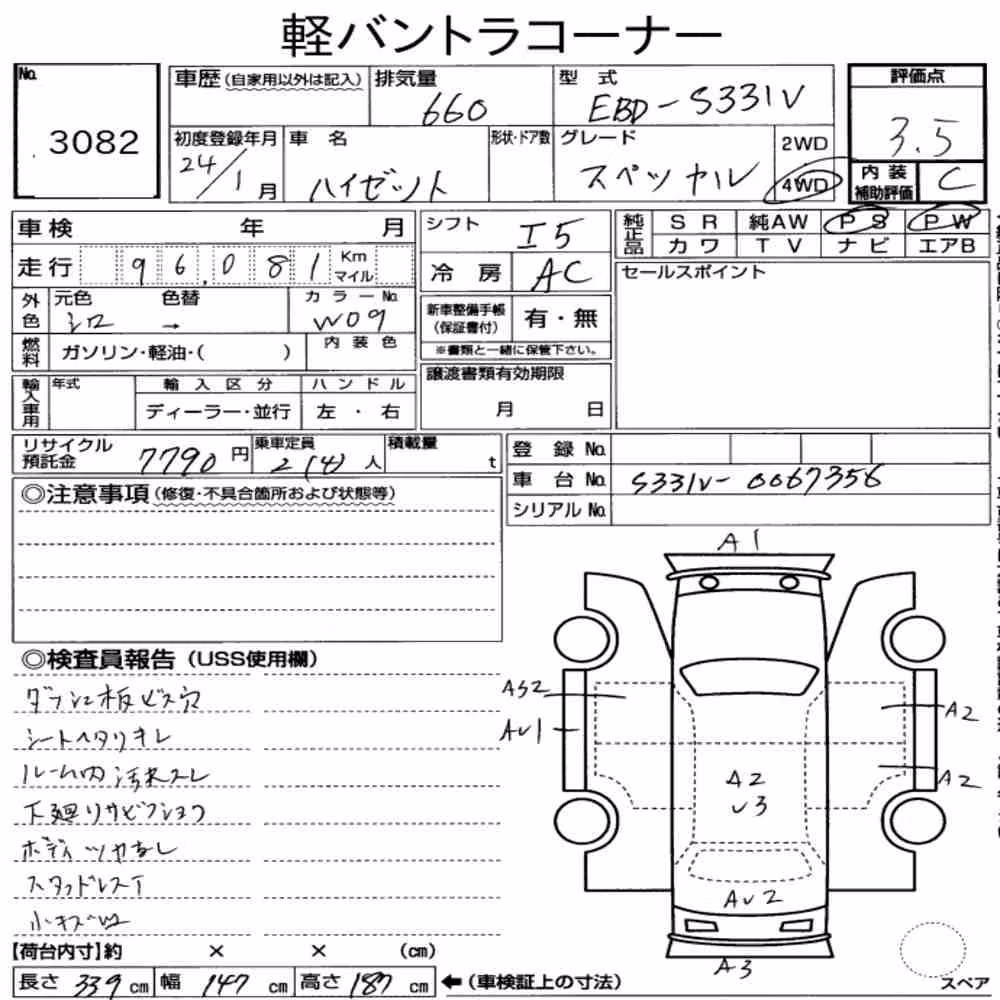 軽バントラコーナー
No. 3082
車歴(自家用以外は記入) 排気量 660 型式 EBD-S331V 評価点 3.5
初度登録年月 24/1月 車名 ハイゼット 形状・ドア数 グレード スペシャル 2WD 4WD 内装補助評価 C
車検 年 月 シフト I5 純正品 SR 純AW PS PW
カワ TV ナビ エアB
走行 96,081 Km マイル 冷房 AC セールスポイント
外色 元色 シロ 色替 → カラーNo. W09 新車整備手帳(保証書付) 有・無
燃料 ガソリン・軽油・( ) 内装色 ※書類と一緒に保管下さい。
輸入車用 年式 輸入区分 ハンドル 譲渡書類有効期限
ディーラー・並行 左・右 月 日
リサイクル預託金 7790円 乗車定員 2(4)人 積載量 t 登録No.
車台No. S331V-0067356
シリアルNo.
◎注意事項(修復・不具合箇所および状態等)
A1
◎検査員報告(USS使用欄)
AS2
AU1
A2
A2
A2
U3
AU2
A3
シートヘタリキレ
ルーム内汚れスレ
下廻りサビフショク
ボディツヤなし
小キズ凹
【荷台内寸】約 × × (cm)
長さ 339 cm 幅 147 cm 高さ 187 cm ←(車検証上の寸法)
スペア